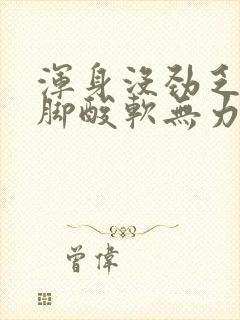 渾身沒勁乏
腳酸軟無力
曾偉